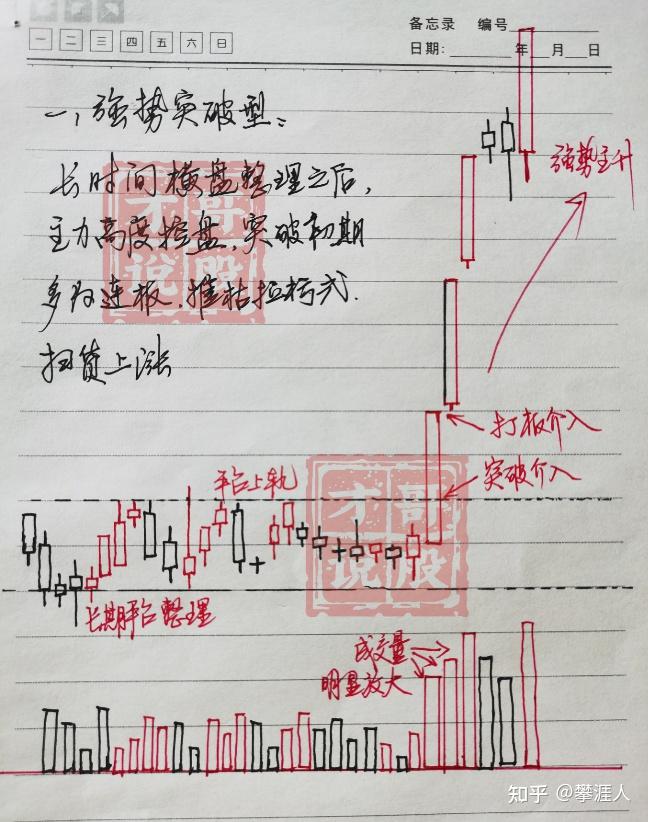 备忘录 编号
一 二 三 四 五 六 日
日期: 年 月 日
一、强势突破型:
长时间横盘整理之后,
主力高度控盘,突破初期
多为连板,摧枯拉朽式.
扫货上涨
强势主升
打板介入
突破介入
平台上轨
长期平台整理
成交量
明显放大
才哥
说股
才哥
说股
知乎 @攀涯人